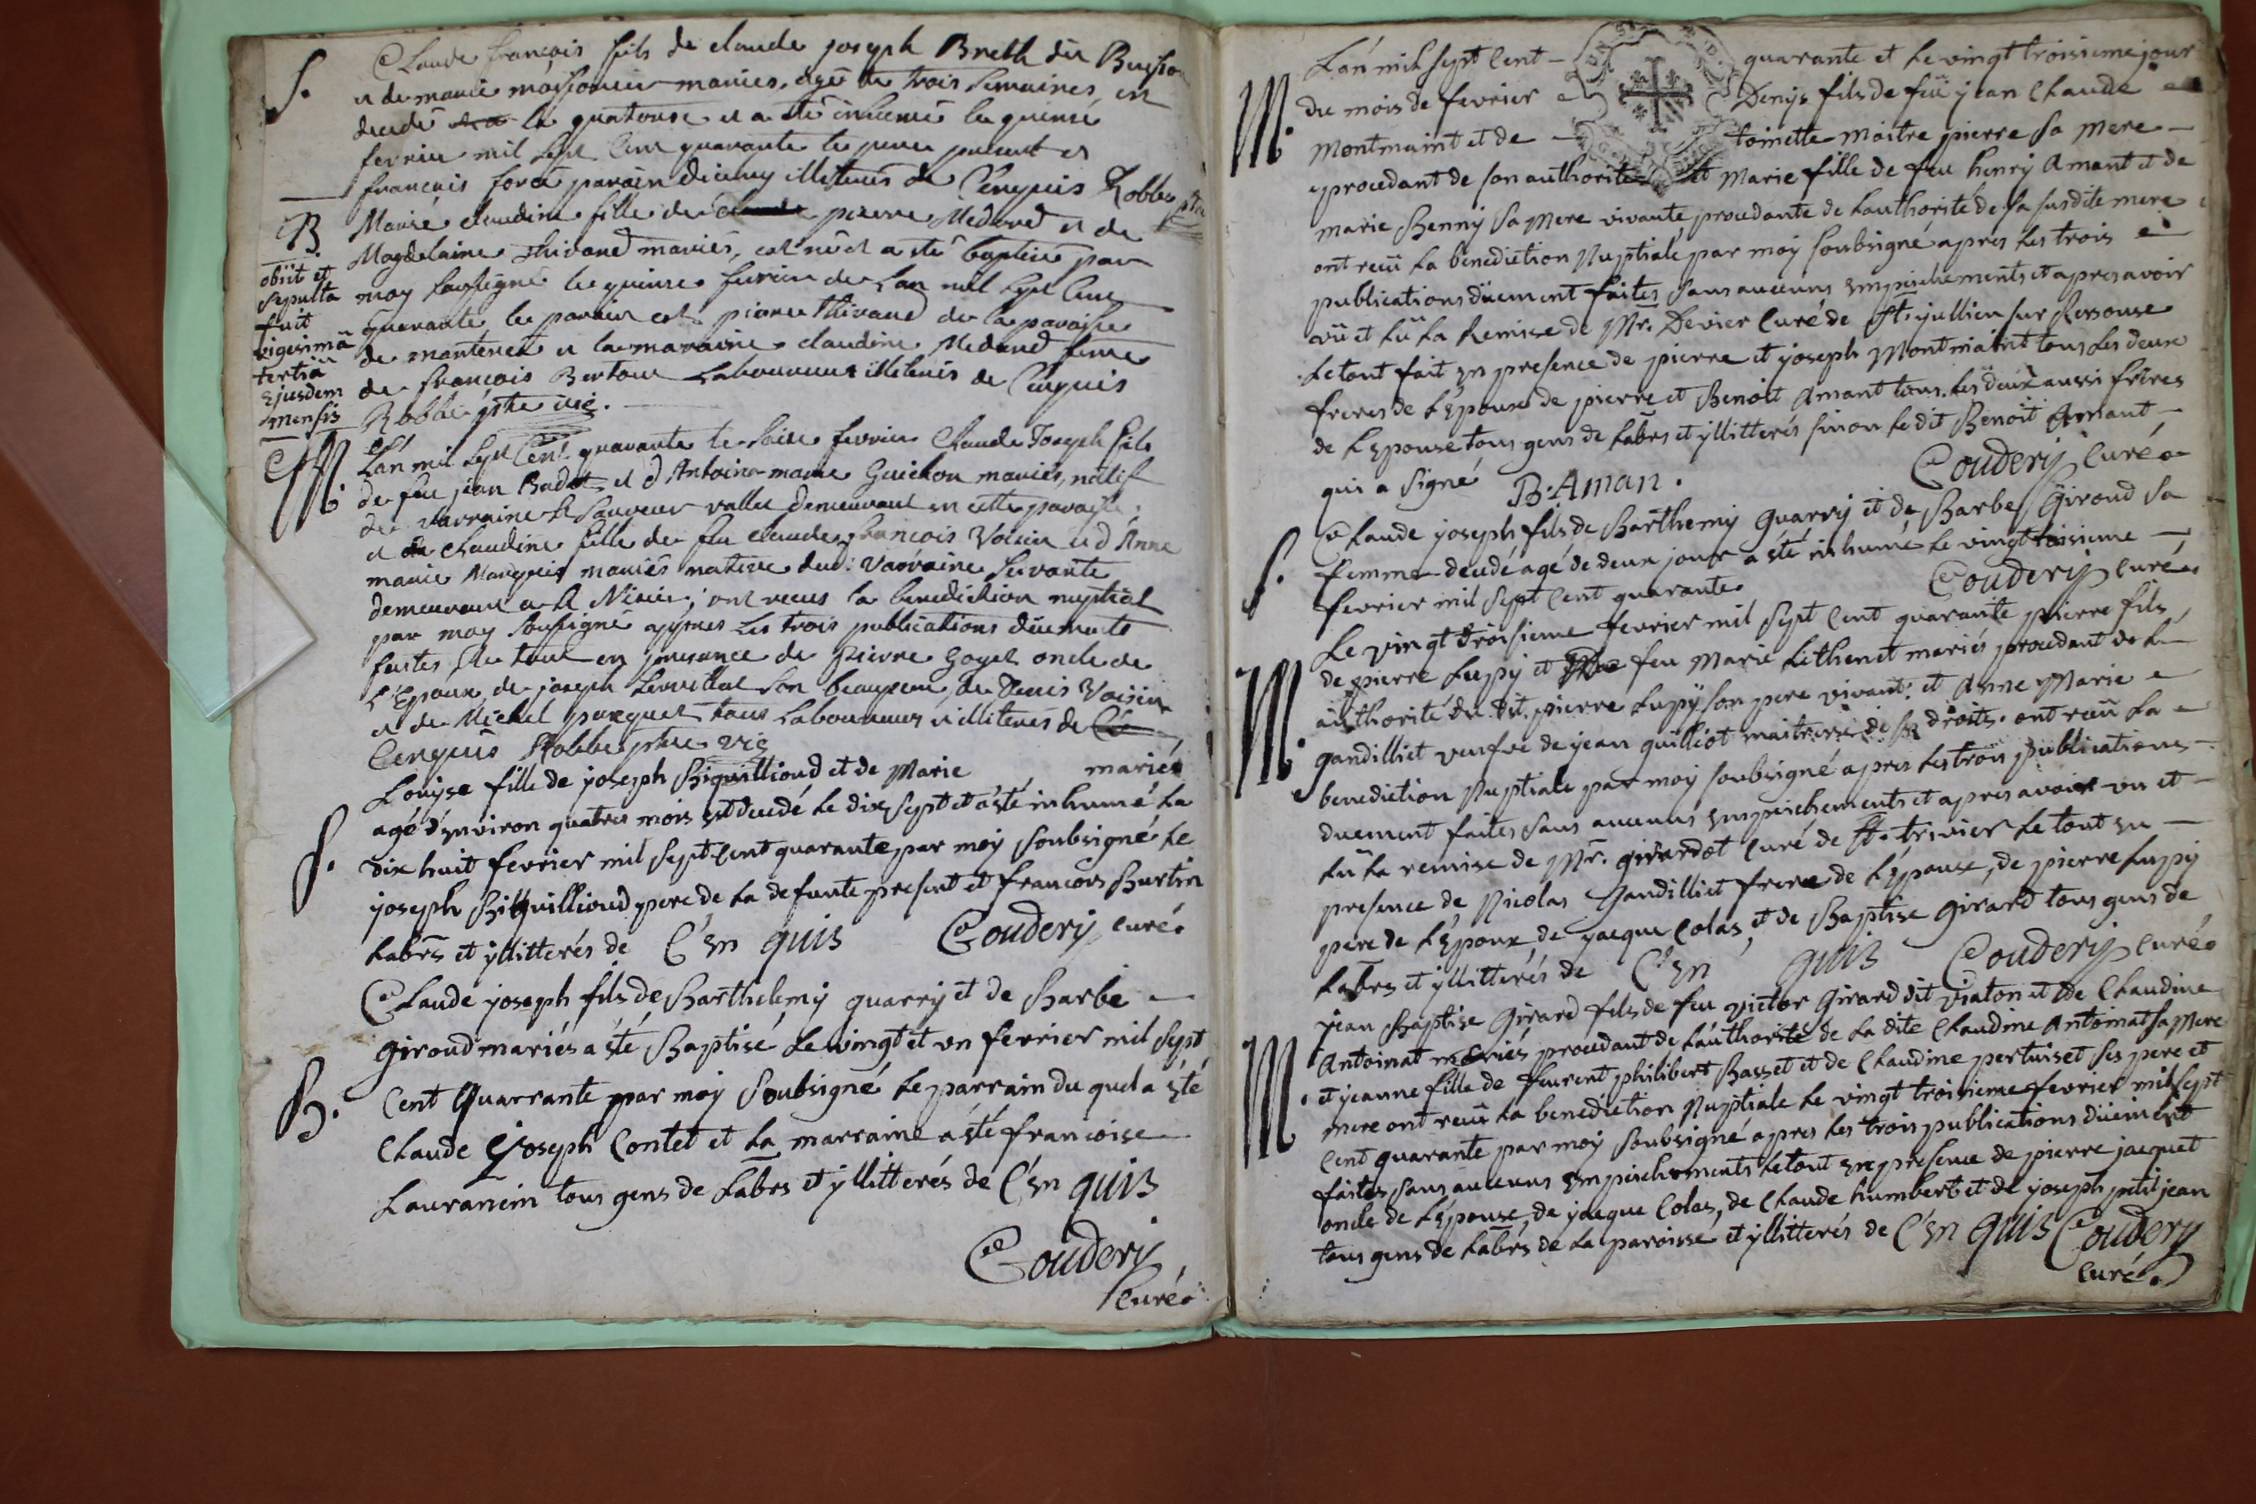 S.
Claude françois fils de claude joseph Breth du Buisson
et de marie moissonier mariés, agé de trois semaines, est
decedé le quatorse et a été inhumé le quinse
fevrier mil sept cent quarante le pere present et
francois foret parain dicimy illiterés de C'enquis Robbe ptre
B.
obiit et
sepulta
fuit
vigesimâ
tertiâ
ejusdem
mensis
Marie claudine fille de pierre Medard et de
Magdelaine Thivand mariés, est né et a été baptisée par
moy soussigné le quinse fevrier de Lan mil sept cent
quarante, le parain est pierre Thivand de la paroisse
de mantenet et la maraine claudine Medard feme
de francois Bertour Laboureur illiterés de C'enquis
Robbe ptre vic.
M.
L'an mil sept Cent quarante le seise fevrier Claude Joseph fils
de feu jean Badot et d'Antoina marie Guichon mariés, natif
de varraine St Sauveur vallet demeurant en cette paroisse
et claudine fille de feu claude françois Voisin et d'Anne
marie Marquis mariés native dud: Varraine servante
demeurant a St Nisier; ont receu la benediction nuptiale
par moy soussigné appres les trois publications düement
faites, Le tout en presance de pierre Goyet oncle de
L'Epoux, de joseph son beaupere, de Denis Voisin
et de Michel pasquet tous Laboureurs illiterés de
Cenquis Robbe ptre vic
S.
Louyse fille de joseph Biguillioud et de Marie mariés
agé d'Environ quatres mois Est decedé le dix sept et a été inhumé La
dix huit fevrier mil sept Cent quarante par moy soubsigné Le
joseph Biguillioud pere de La defunte present et francois Burtin
Labrs et yllitterés de C'En quis Coudery, curé.
B.
Claude joseph fils de Barthelemy quarry et de Barbe
Giroud mariés a été Baptisé Le vingt et un fevrier mil sept
Cent Quarrante par moy Soubsigné Le parrain du quel a été
Claude Joseph Contet et La marraine a été francoise
Laurancin tous gens de Labrs et yllitterés de C'En quis
Coudery
Curé.
M.
L'an mil sept Cent quarante et Le vingt troisieme jour
du mois de fevrier Denys fils de feü jean Claude
Montmaint et de toinette Maitre pierre sa Mere
procedant de son authorité et Marie fille de feu henry Amant et de
marie Benny sa Mere vivante, procedante de L'authorité de sa susdite mere
ont receü La benediction Nuptiale par moy soubsigné apres Les trois
publications düement faites sans aucuns Empeichements et apres avoir
vü et Lü La Remise de Mr. Devier Curé de St. jullien sur Ressouse
Le tout fait En presence de pierre et joseph Montmaint tous Les deux
freres de L'Epoux de pierre et Benoît Amant tous Les deux aussi freres
de L'Epouse tous gens de Labrs et yllitterés sinon Le dit Benoît Amant
qui a signé B. Aman. Coudery Curé
S.
Claude joseph fils de Barthemy Quarry et de Barbe Giroud sa
femme decedé agé de deux jours a été inhumé Le vingt troisieme
fevrier mil sept Cent quarante Coudery Curé.
M.
Le vingt troisieme fevrier mil sept Cent quarante pierre fils
de pierre Lupy et feu Marie Lithenet mariés procedant de L'
authorité du dit pierre Lupy son pere vivant et Anne Marie
gandilliet veufve de jean Guilliot maitresse de ses droits. ont receü La
benediction Nuptiale par moy soubsigné apres Les trois publications
duement faites sans aucuns Empeichements et apres avoir vu et
Lû La remise de Mr. Girardot Curé de St. trivier Le tout En
presence de Nicolas Gandilliet frere de L'Epouse, de pierre Lupy
pere de L'Epoux, de jacque Colas, et de Baptise Girard tous gens de
Labrs et yllitterés de C'En quis Coudery Curé.
M.
jean Baptise Girard fils de feu victor Girard dit viaton et de Claudine
Antoinat mariés procedant de L'authorité de La dite Claudine Antomat sa Mere
et jeanne fille de feurent philibert Basset et de Claudine pertuiset ses pere et
mere ont receü La benediction Nuptiale Le vingt troisieme fevrier mil sept
Cent quarante par moy soubsigné apres Les trois publications düement
faites sans aucuns Empeichements Le tout En presence de pierre jacquet
oncle de L'Epouse, de jacque Colas, de Claude humbert et de joseph petitjean
tous gens de Labrs de La paroisse et yllitterés de C'En quis Coudery
Curé.